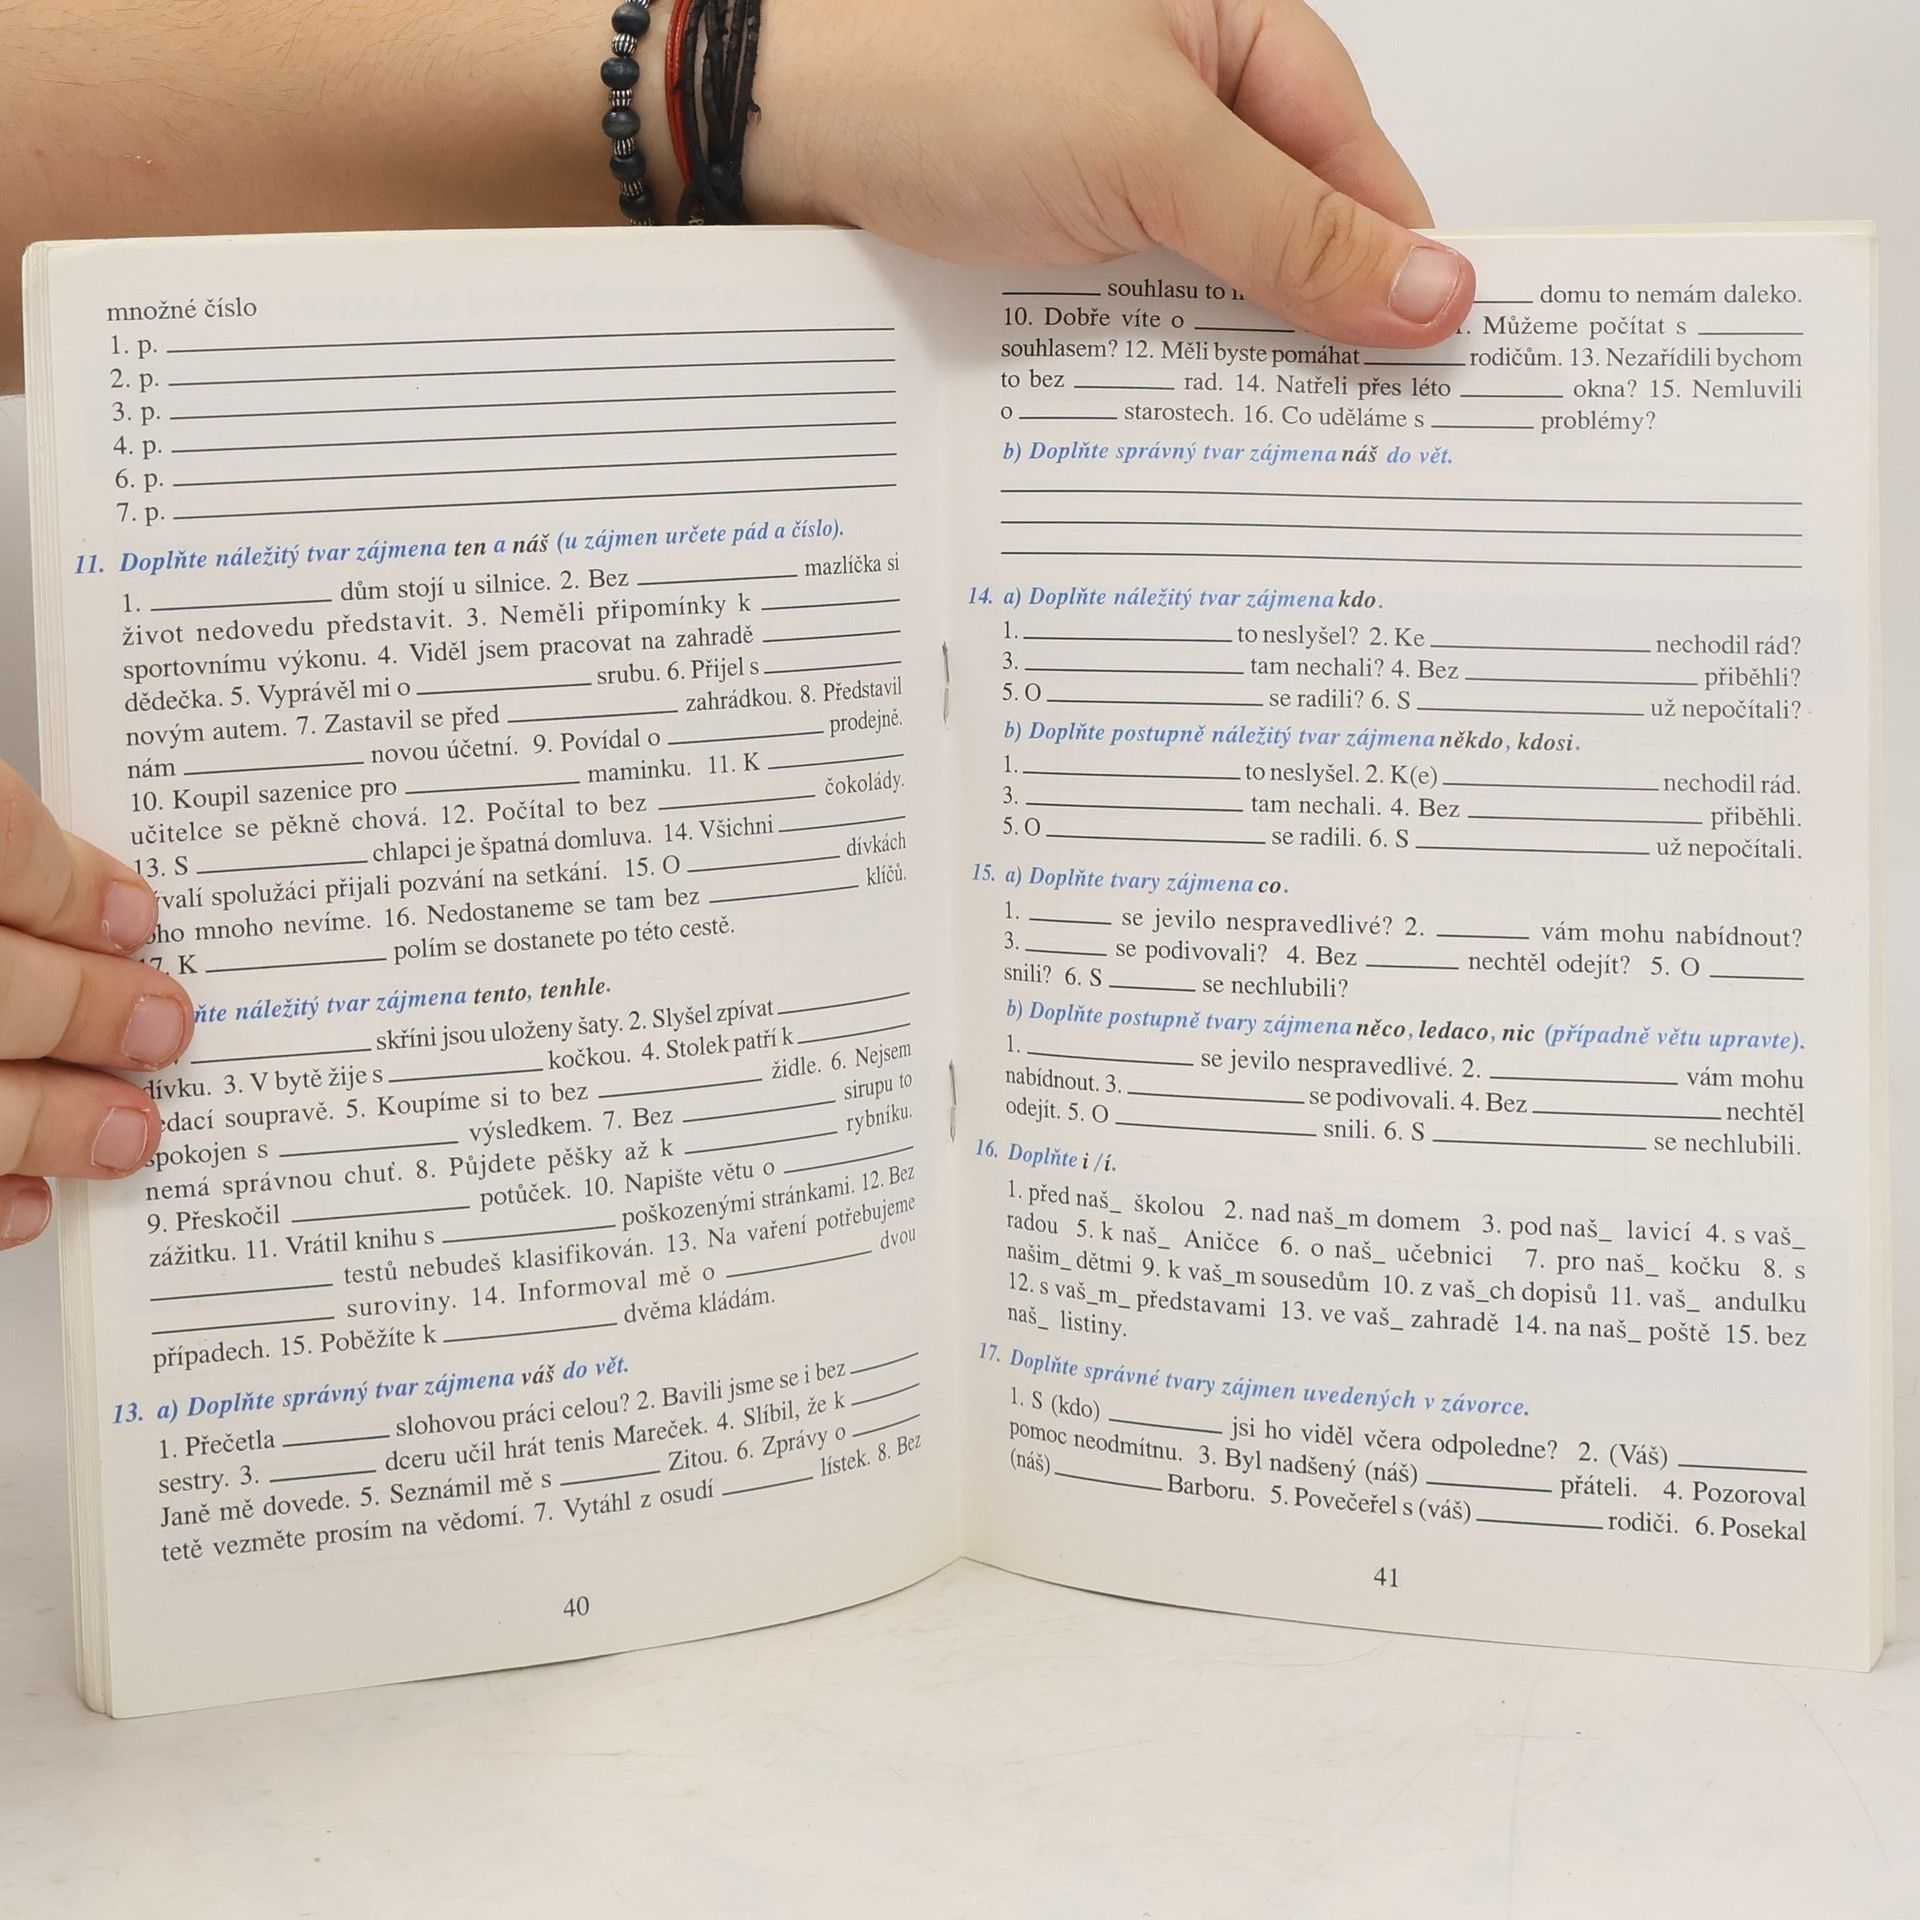 množné číslo
1. p.
2. p.
3. p.
4. p.
6. p.
7. p.
11. Doplňte náležitý tvar zájmena ten a náš (u zájmen určete pád a číslo).
1. ____ dům stojí u silnice. 2. Bez ____ mazlíčka si
život nedovedu představit. 3. Neměli připomínky k ____
sportovnímu výkonu. 4. Viděl jsem pracovat na zahradě ____
dědečka. 5. Vyprávěl mi o ____ srubu. 6. Přijel s ____
novým autem. 7. Zastavil se před ____ zahrádkou. 8. Představil
nám ____ novou účetní. 9. Povídal o ____ prodejně.
10. Koupil sazenice pro ____ maminku. 11. K ____
učitelce se pěkně chová. 12. Počítal to bez ____ čokolády.
13. S ____ chlapci je špatná domluva. 14. Všichni ____
ývalí spolužáci přijali pozvání na setkání. 15. O ____ dívkách
oho mnoho nevíme. 16. Nedostaneme se tam bez ____ klíčů.
17. K ____ polím se dostanete po této cestě.
ňte náležitý tvar zájmena tento, tenhle.
____ skříni jsou uloženy šaty. 2. Slyšel zpívat ____
dívku. 3. V bytě žije s ____ kočkou. 4. Stolek patří k ____
edací soupravě. 5. Koupíme si to bez ____ židle. 6. Nejsem
spokojen s ____ výsledkem. 7. Bez ____ sirupu to
nemá správnou chuť. 8. Půjdete pěšky až k ____ rybníku.
9. Přeskočil ____ potůček. 10. Napište větu o ____
zážitku. 11. Vrátil knihu s ____ poškozenými stránkami. 12. Bez
____ testů nebudeš klasifikován. 13. Na vaření potřebujeme
____ suroviny. 14. Informoval mě o ____ dvou
případech. 15. Poběžíte k ____ dvěma kládám.
13. a) Doplňte správný tvar zájmena váš do vět.
1. Přečetla ____ slohovou práci celou? 2. Bavili jsme se i bez ____
sestry. 3. ____ dceru učil hrát tenis Mareček. 4. Slíbil, že k ____
Janě mě dovede. 5. Seznámil mě s ____ Zitou. 6. Zprávy o ____
tetě vezměte prosím na vědomí. 7. Vytáhl z osudí ____ lístek. 8. Bez
40
____ souhlasu to ____ domu to nemám daleko.
10. Dobře víte o ____ Můžeme počítat s ____
souhlasem? 12. Měli byste pomáhat ____ rodičům. 13. Nezařídili bychom
to bez ____ rad. 14. Natřeli přes léto ____ okna? 15. Nemluvili
o ____ starostech. 16. Co uděláme s ____ problémy?
b) Doplňte správný tvar zájmena náš do vět.
14. a) Doplňte náležitý tvar zájmena kdo.
1. ____ to neslyšel? 2. Ke ____ nechodil rád?
3. ____ tam nechali? 4. Bez ____ přiběhli?
5. O ____ se radili? 6. S ____ už nepočítali?
b) Doplňte postupně náležitý tvar zájmena někdo, kdosi.
1. ____ to neslyšel. 2. K(e) ____ nechodil rád.
3. ____ tam nechali. 4. Bez ____ přiběhli.
5. O ____ se radili. 6. S ____ už nepočítali.
15. a) Doplňte tvary zájmena co.
1. ____ se jevilo nespravedlivé? 2. ____ vám mohu nabídnout?
3. ____ se podivovali? 4. Bez ____ nechtěl odejít? 5. O ____
snili? 6. S ____ se nechlubili?
b) Doplňte postupně tvary zájmena něco, ledaco, nic (případně větu upravte).
1. ____ se jevilo nespravedlivé. 2. ____ vám mohu
nabídnout. 3. ____ se podivovali. 4. Bez ____ nechtěl
odejít. 5. O ____ snili. 6. S ____ se nechlubili.
16. Doplňte i /í.
1. před naš_ školou 2. nad naš_m domem 3. pod naš_ lavicí 4. s vaš_
radou 5. k naš_ Aničce 6. o naš_ učebnici 7. pro naš_ kočku 8. s
našim_ dětmi 9. k vaš_m sousedům 10. z vaš_ch dopisů 11. vaš_ andulku
12. s vaš_m_ představami 13. ve vaš_ zahradě 14. na naš_ poště 15. bez
naš_ listiny.
17. Doplňte správné tvary zájmen uvedených v závorce.
1. S (kdo) ____ jsi ho viděl včera odpoledne? 2. (Váš) ____
pomoc neodmítnu. 3. Byl nadšený (náš) ____ přáteli. 4. Pozoroval
(náš) ____ Barboru. 5. Povečeřel s (váš) ____ rodiči. 6. Posekal
41